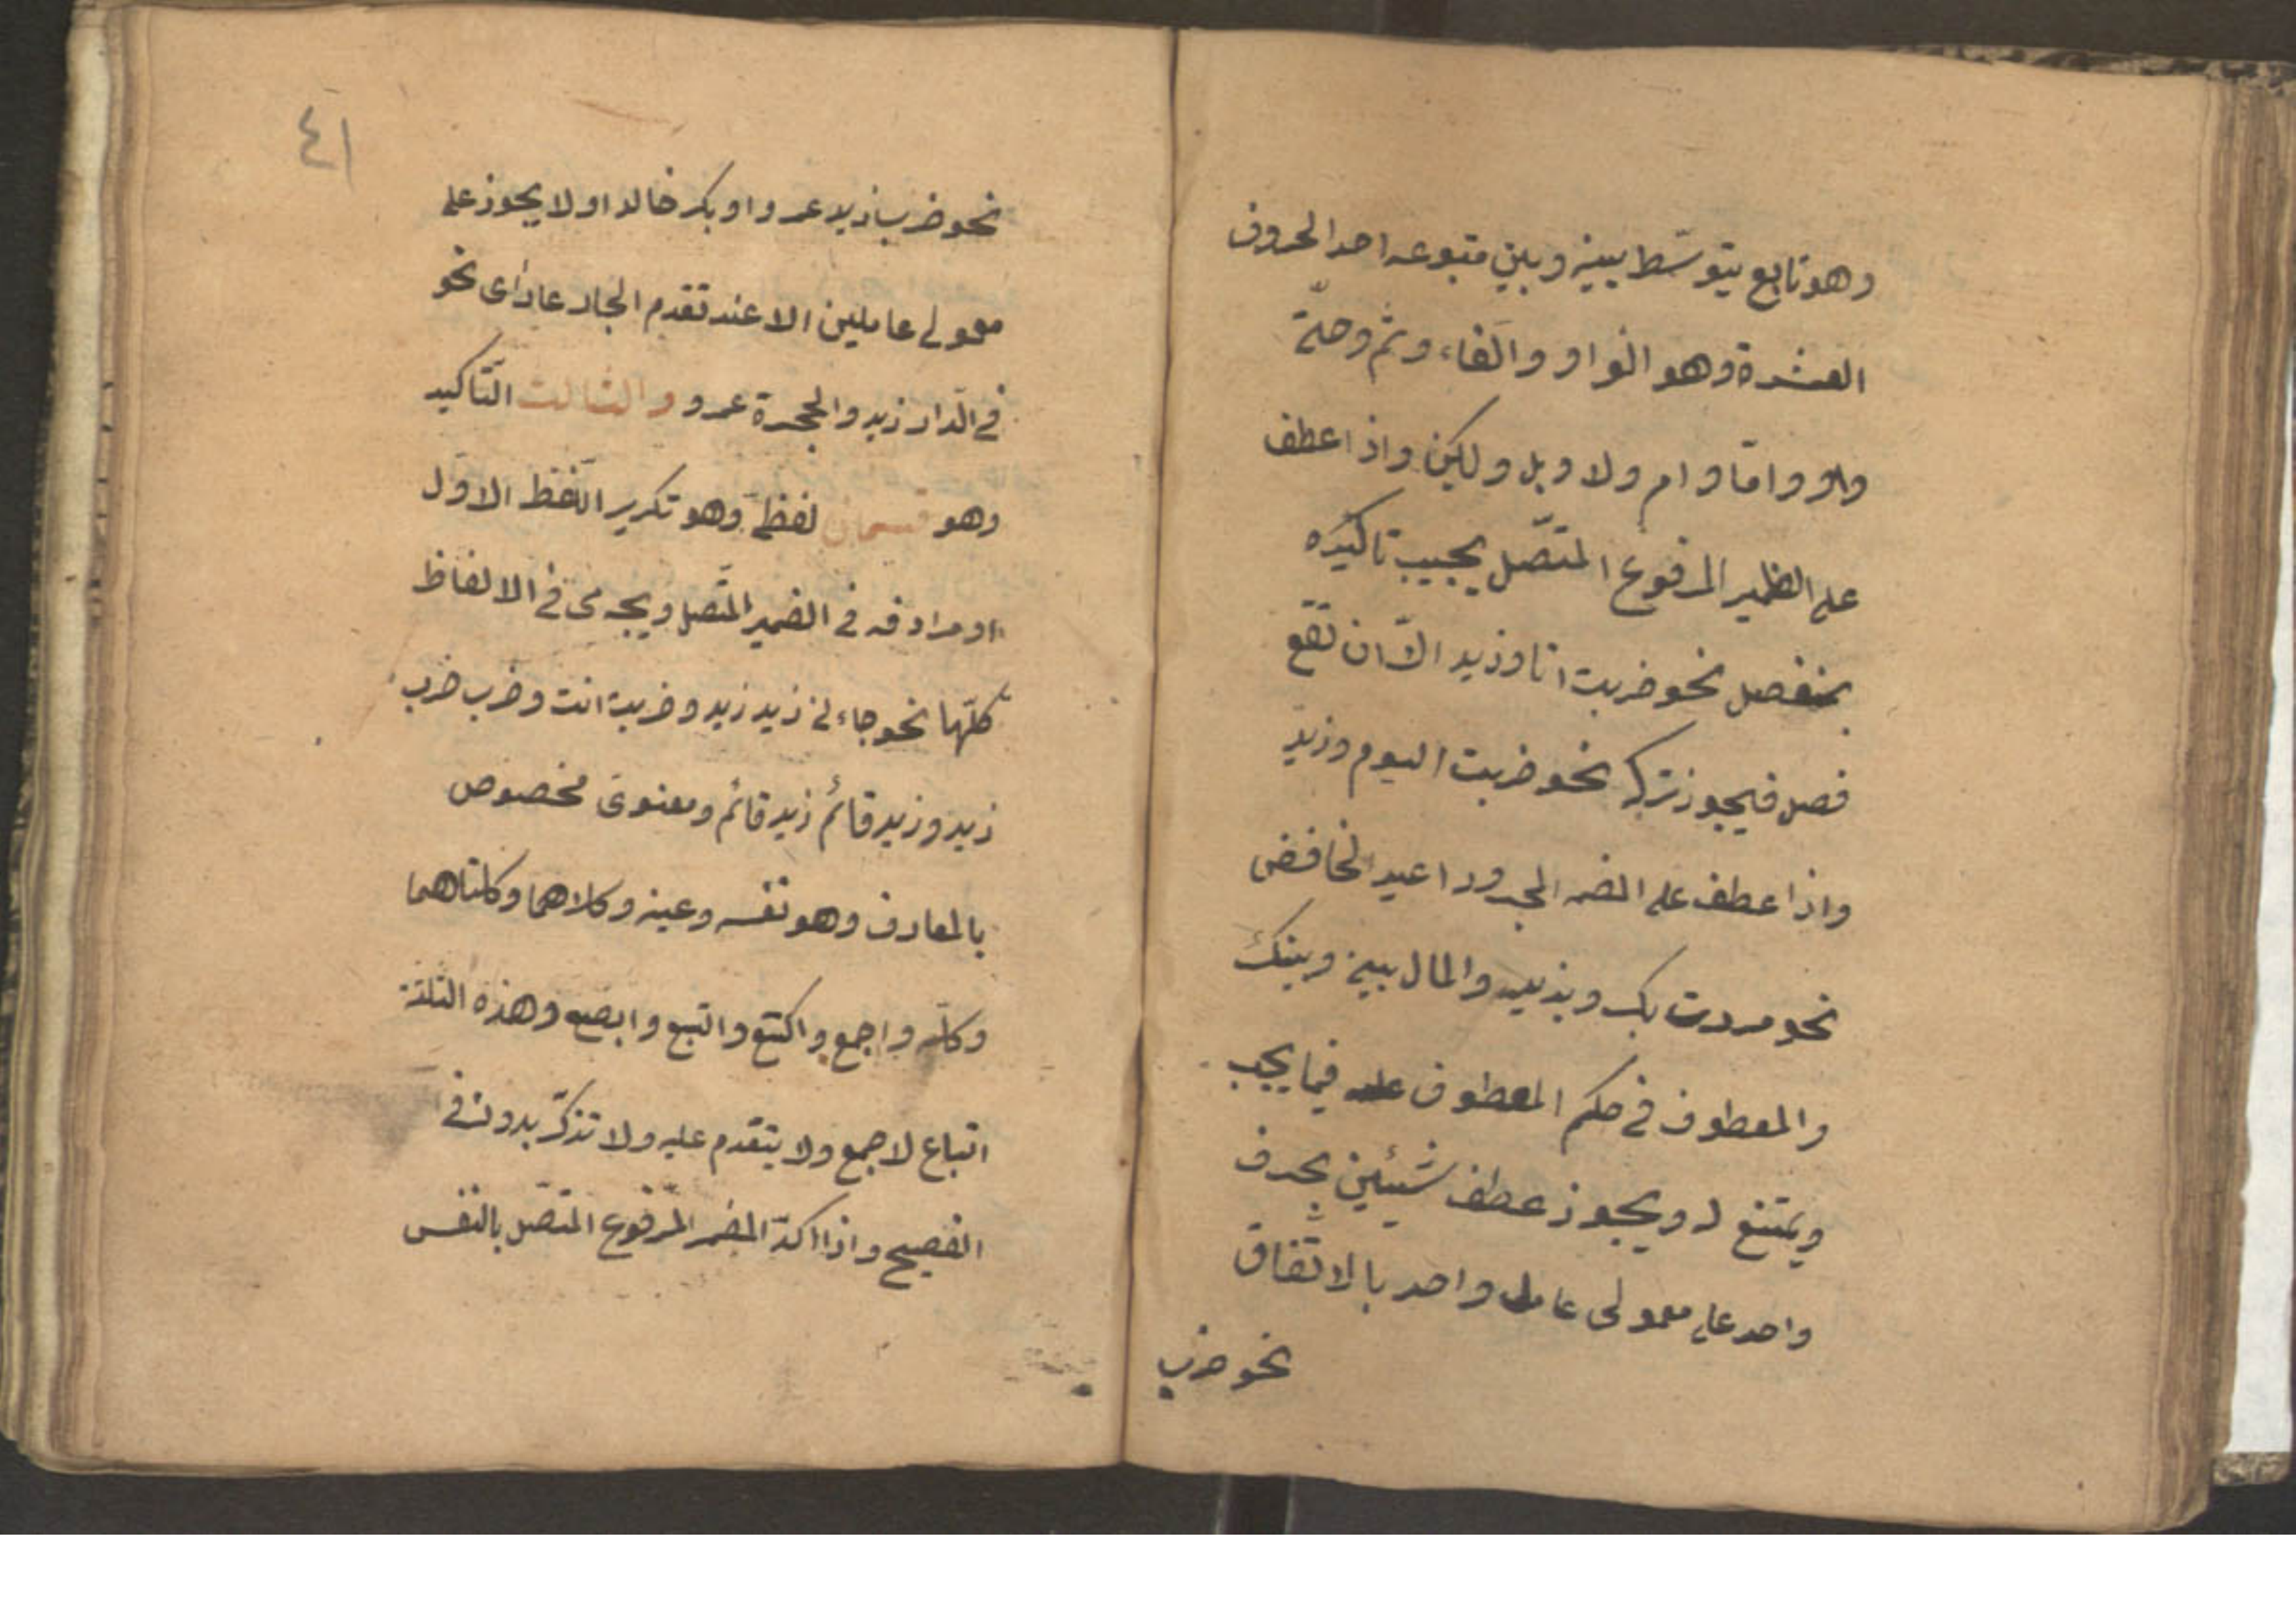 وهو تابع يتوسّط بينه وبين متبوعه احد الحروف
العشرة وهو الواو والفاء وثم وحتّى
واو وامّا وام ولا وبل ولكن واذا عطف
على الظمير المرفوع المتّصل يجب تاكيده
بمنفصل نحو ضربت انا وزيد الّا ان تقع
فصل فيجوز تركه نحو ضربت اليوم وزيد
واذا عطف على المضمر المجرور اعيد الخافض
نحو مررت بك وبزيد والمال بينى وبينك
والمعطوف فى حكم المعطوف عليه فيما يجب
ويمتنع له ويجوز عطف شيئين بحرف
واحد على معمولى عامل واحد بالاتّفاق
نحو ضرب
٤١
نحو ضرب زيد عمروا وبكر خالدا ولا يجوز على
معمولى عاملين الا عند تقدم الجار على راى نحو
فى الدّار زيد والحجرة عمرو والثالث التّاكيد
وهو قسمان لفظى وهو تكرير اللّفظ الاوّل
او مرادفه فى الضمير المتّصل ويجرى فى الالفاظ
كلّها نحو جاءنى زيد زيد وضربت انت وضرب ضرب
زيد وزيد قائم زيد قائم ومعنوى مخصوص
بالمعارف وهو نفسه وعينه وكلاهما وكلتاهما
وكلّه واجمع واكتع واتبع وابصع وهذه الثلثة
اتباع لاجمع ولا يتقدم عليه ولا تذكّر بدونه فى
الفصيح واذا اكدّ المضمر المرفوع المتّصل بالنفس